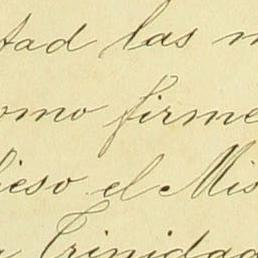 tad las m
omo firme
ieso el Mis
a Trinidad